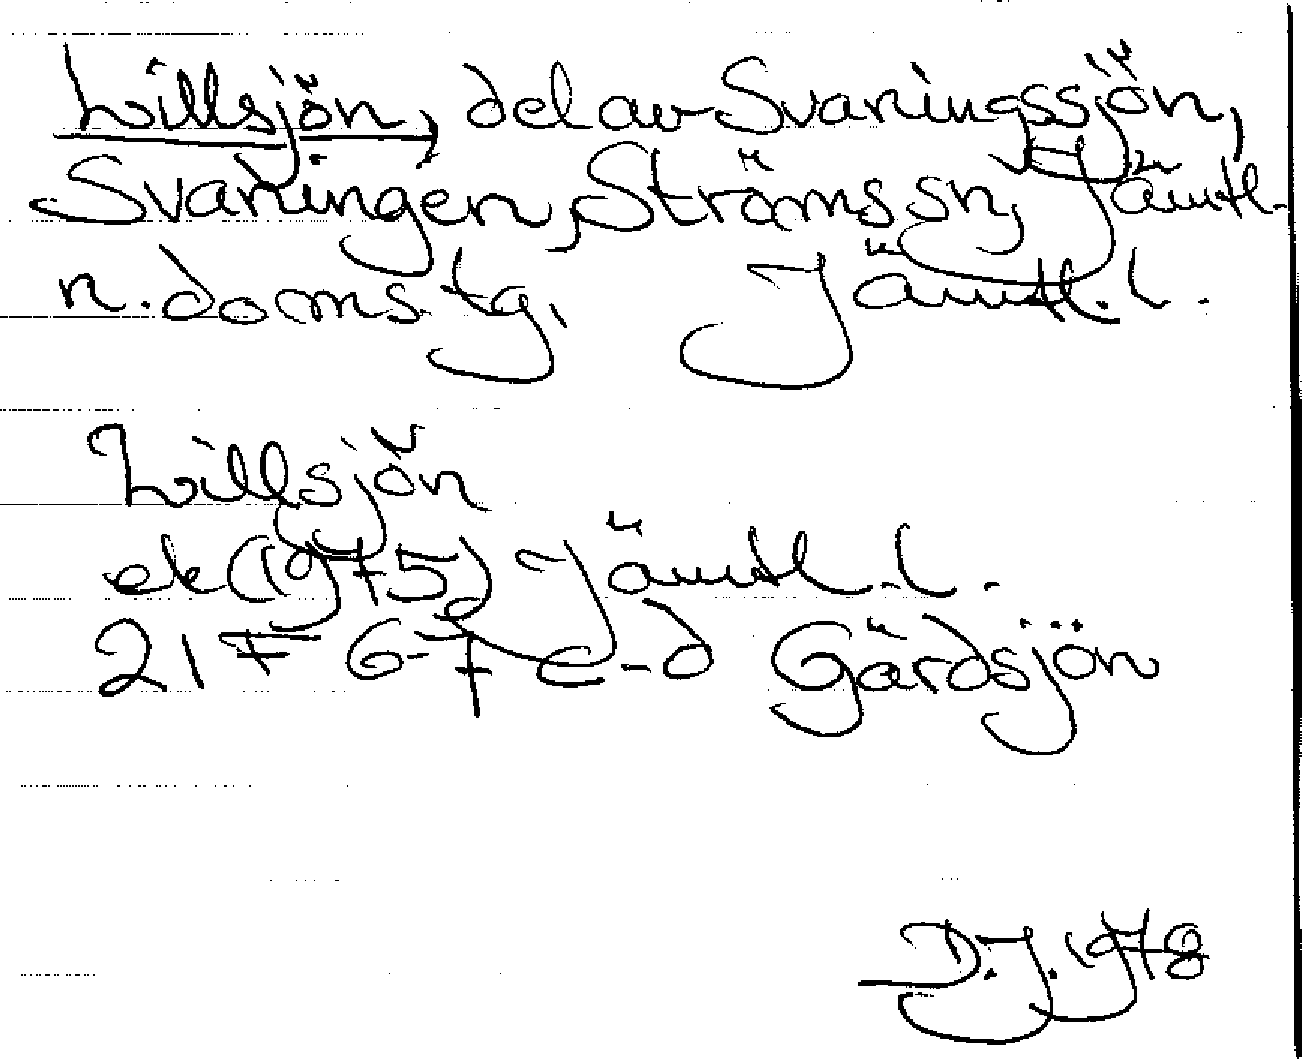 Lillsjön, del av Svaningssjön,
Svaningen, Ströms sn, Jämtl.
n. doms.tg, Jämtl. l.
Lillsjön
ek (1975) Jämtl. l.
21 F 6-7 c-d Gärdsjön
D.J. 1978